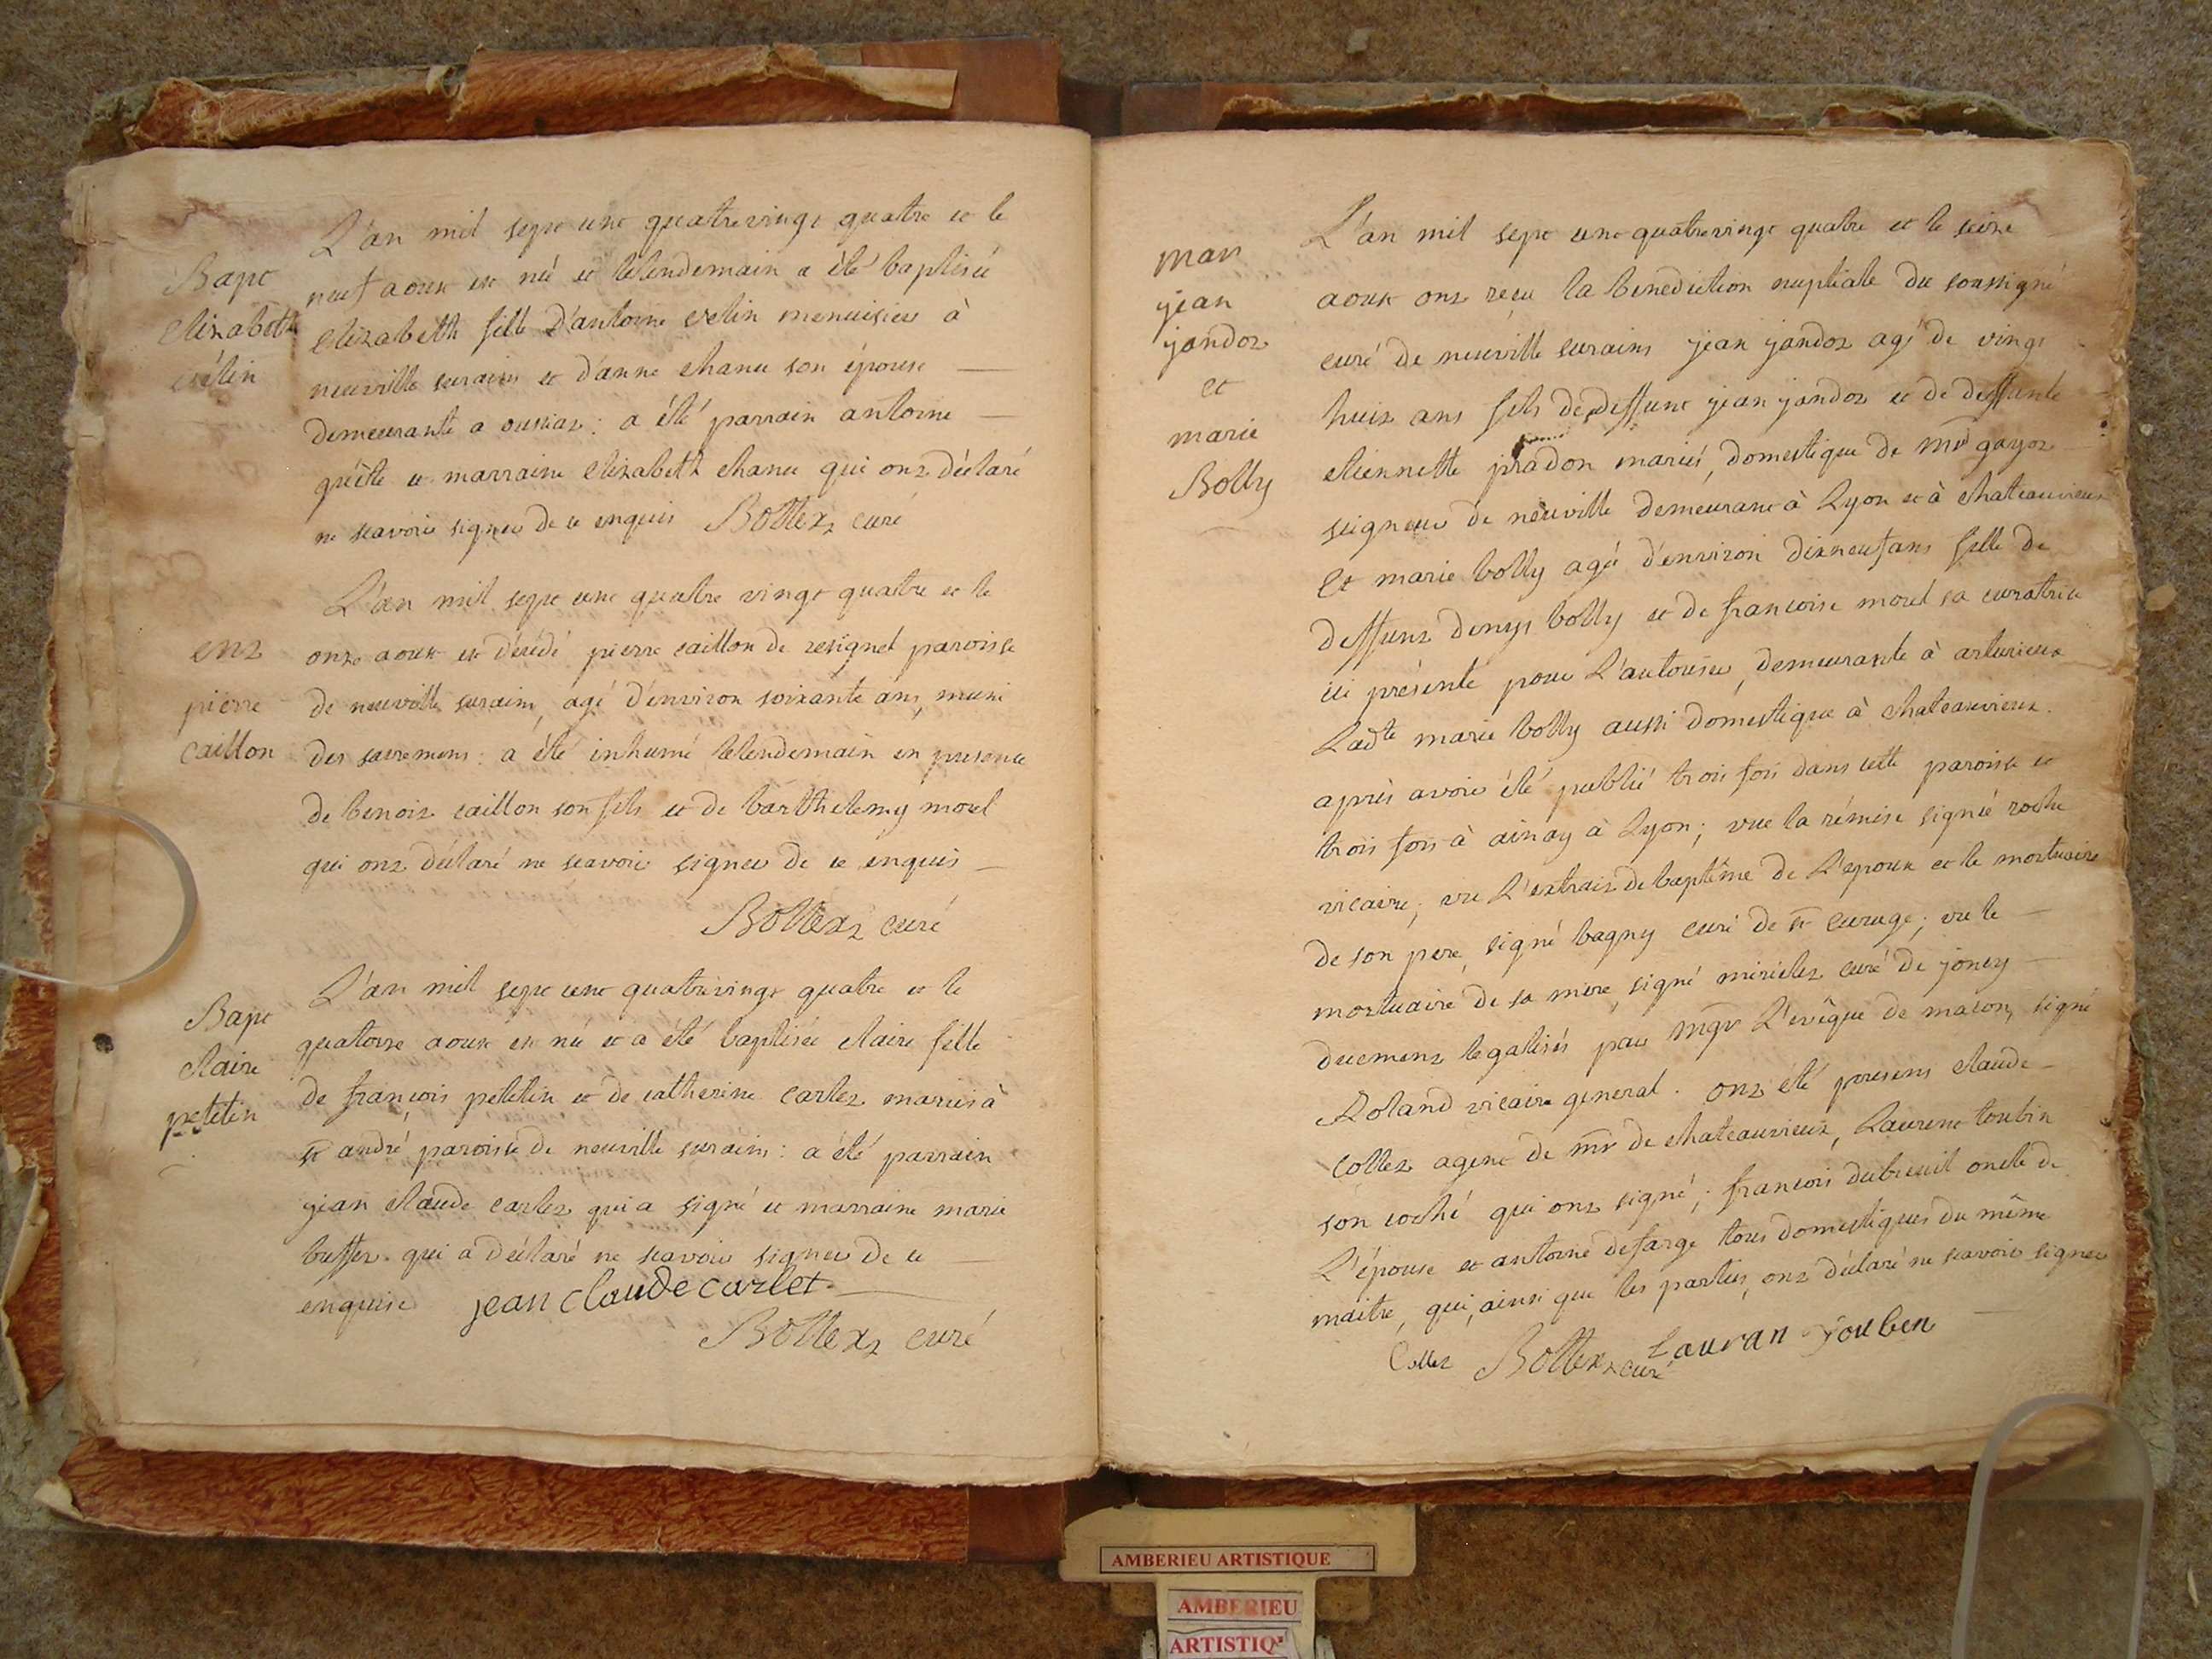 Bapt
Elizabeth
evelin
L'an mil sept cent quatrevingt quatre et le
neuf aoust est née et lelendemain a été baptisée
elizabeth fille d'antoine evelin menuisier à
neuville surains et d'anne chanu son épouse
demeurante a oussiat : a été parrain antoine
et marraine elizabeth chanu qui ont déclaré
ne scavoir signer de ce enquis Bottex curé
ent
pierre
caillon
L'an mil sept cent quatre vingt quatre et le
onze aoust est décédé pierre caillon de resignel paroisse
de neuville surains, agé d'environ soixante ans, muni
des sacremens : a été inhumé lelendemain en presence
de benoit caillon son fils et de barthelemy morel
qui ont déclaré ne scavoir signer de ce enquis
Bottex curé
Bapt
claire
petetin
L'an mil sept cent quatrevingt quatre et le
quatorze aoust est née et a été baptisée claire fille
de françois petetin et de catherine carlet mariés à
st andré paroisse de neuville surains : a été parrain
jean claude carlet qui a signé et marraine marie
buffet qui a déclaré ne scavoir signer de ce
enquise jean claude carlet
Bottex curé
mar
jean
jandot
et
marie
Bolly
L'an mil sept cent quatrevingt quatre et le seize
aoust ont reçu la benediction nuptiale du soussigné
curé de neuville surains jean jandot agé de vingt
huit ans fils de deffunt jean jandot et de deffunte
etiennette pradon mariés, domestique de mr gayot
seigneur de neuville demeurant à Lyon et à chateauvieux
Et marie bolly agée d'environ dixneuf ans fille de
deffunt denys bolly et de francoise morel sa curatrice
ici présente pour l'autoriser, demeurante à arturieux
Ladte marie bolly aussi domestique à chateauvieux.
après avoir été publié trois fois dans cette paroisse et
trois fois à ainay à Lyon ; vue la rémise signée roche
vicaire ; vu l'extrait de baptême de l'epoux et le mortuaire
de son pere, signé bagny curé de st curuge ; vu le
mortuaire de sa mere, signé curé de joncy
duement legalisés par mgr l'evêque de macon, signé
Roland vicaire general. ont été presens claude
collet agent de mr de chateauvieux, Laurent toubin
son coché qui ont signé ; francois dubreuil oncle de
L'épouse et antoine defarge tous domestiques du même
maitre, qui, ainsi que les parties, ont déclaré ne scavoir signer
Collet Bottex curé Lauran Toubin
AMBERIEU ARTISTIQUE
AMBERIEU
ARTISTIQ